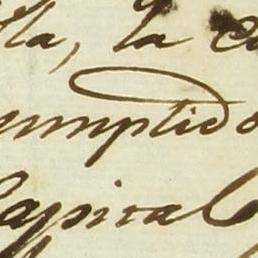 la, la
cumplido
Capital